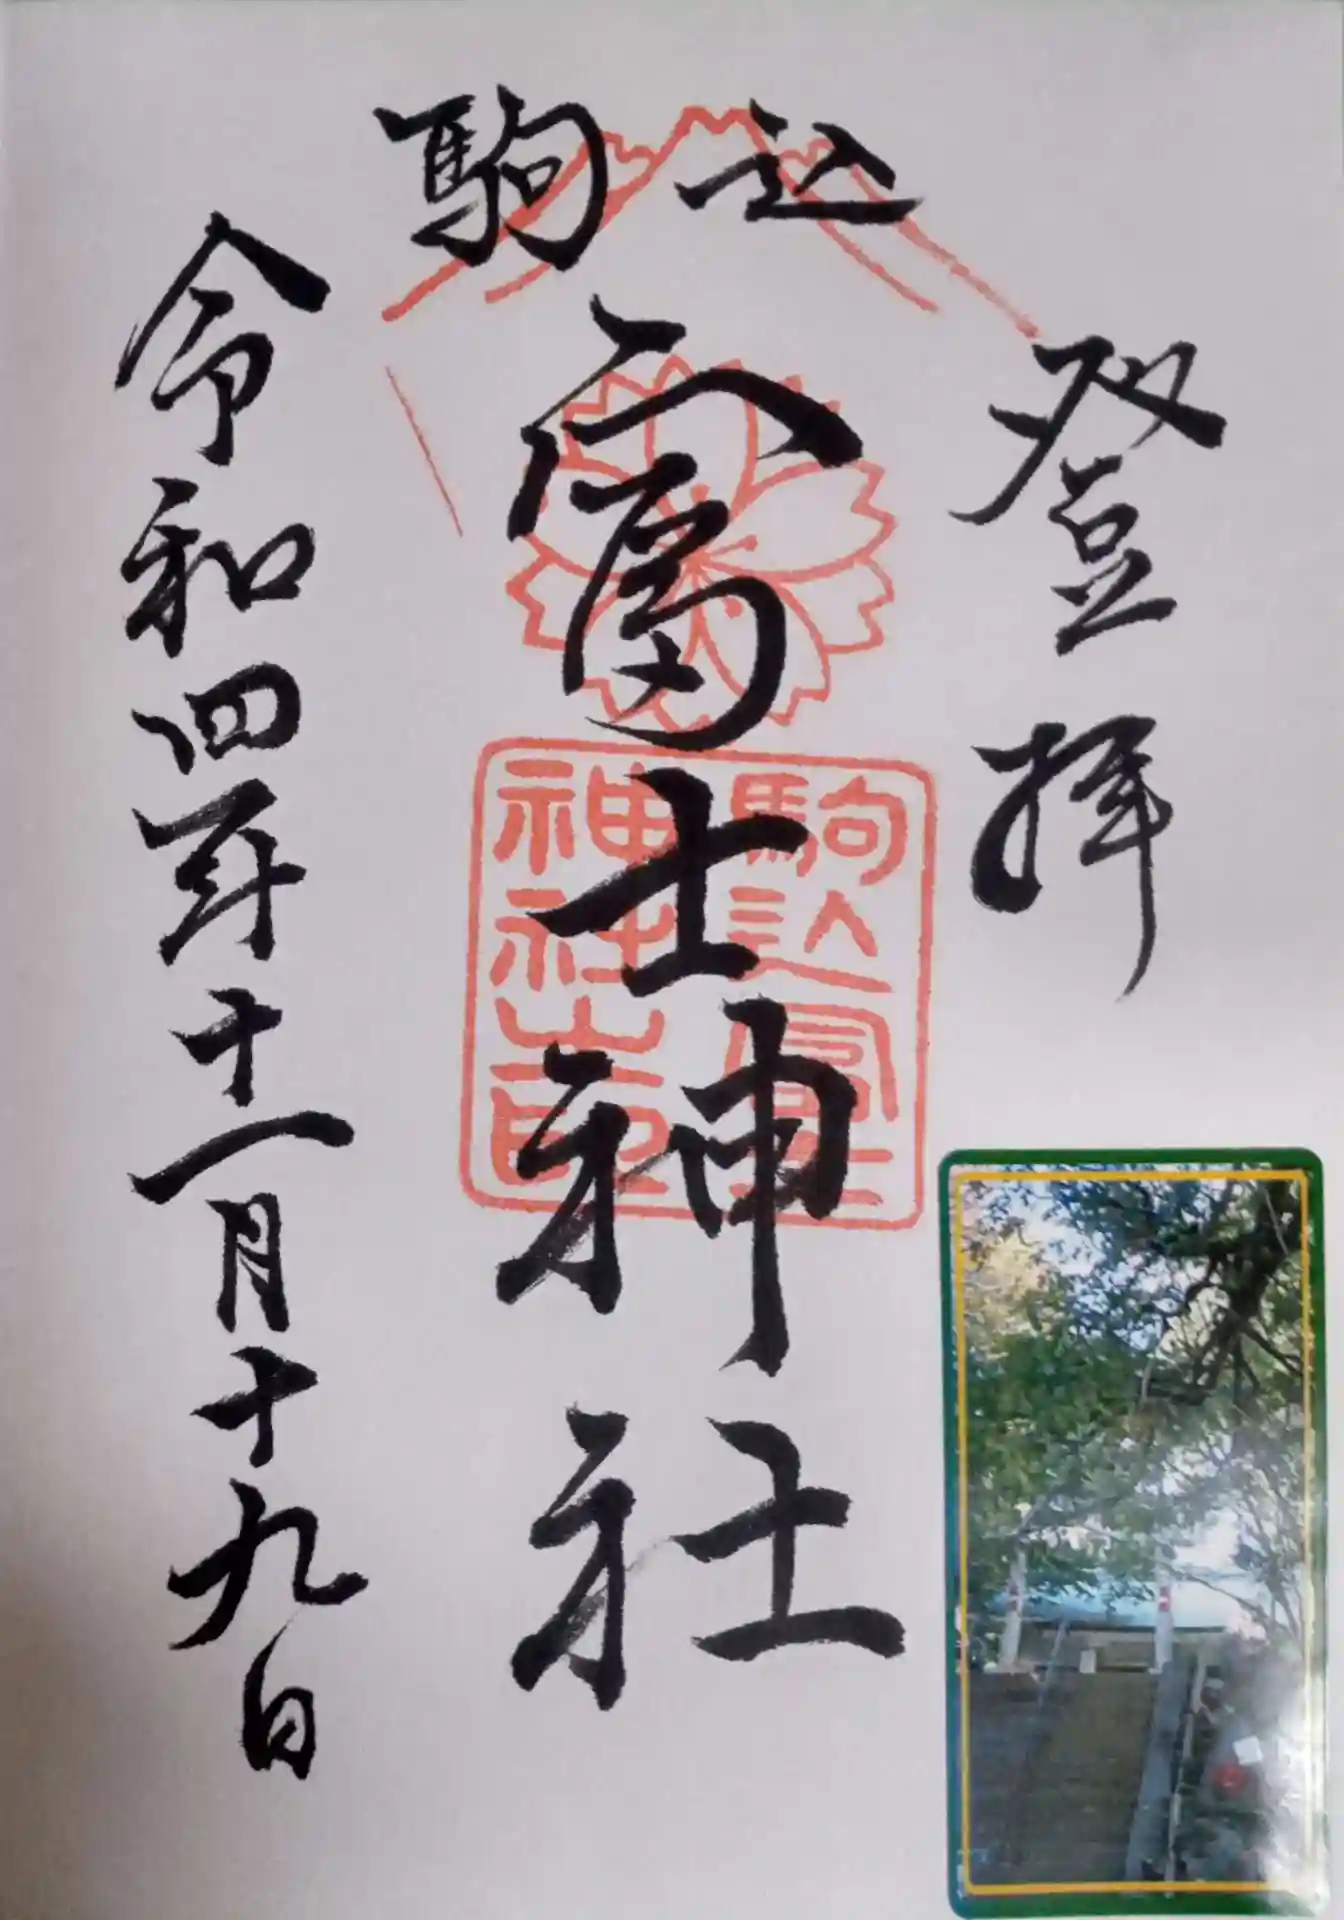 登拝
駒込
富士神社
駒込富士
神社之印
令和四年十一月十九日